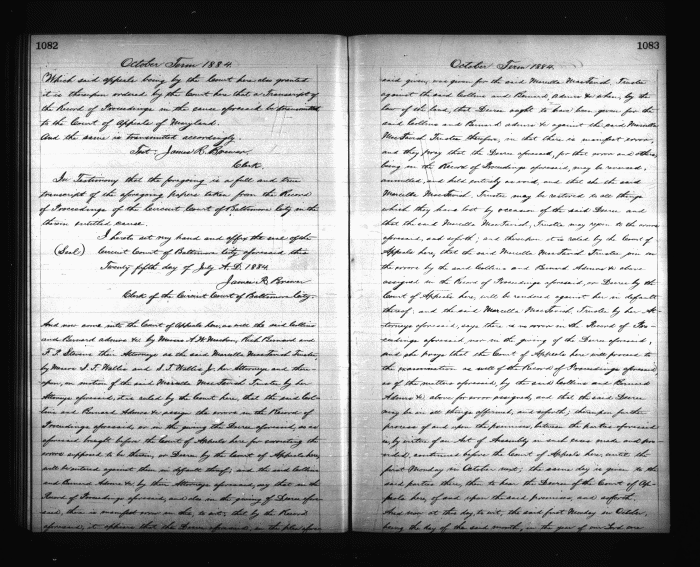 1082
October Term 1884.
Which said appeals being by the Court here also granted
it is thereupon ordered by the Court here that a Transcript of
the Record of Proceedings in the cause aforesaid be transmitted
to the Court of Appeals of Maryland.
And the same is transmitted accordingly.
Test James R. Brewer
Clerk.
In Testimony that the foregoing is a full and true
transcript of the foregoing papers taken from the Record
of Proceedings of the Circuit Court of Baltimore City in the
therein entitled cause.
I hereto set my hand and affix the seal of the
(Seal) Circuit Court of Baltimore City aforesaid this
Twenty fifth day of July A.D. 1884.
James R. Brewer
Clerk of the Circuit Court of Baltimore City.
And now come into the Court of Appeals here, as well the said Collins
and Bernard Admrs &c by Messrs A. W. Rich Bernard and
F. P. Stevens their Attorneys as the said Marcella Trustee,
by Messrs S. T. Wallis and J. T. Wallis Jr. her Attorneys and there-
upon, on motion of the said Marcella Trustee by her
Attorneys aforesaid, it is ruled by the Court here, that the said Col-
lins and Bernard Admrs &c assign the errors in the Record of
Proceedings aforesaid, or in the giving the Decree aforesaid, as
aforesaid brought before the Court of Appeals here for correcting the
errors supposed to be therein, or Decree by the Court of Appeals here
will be entered against them in default thereof; and the said Collins
and Bernard Admrs &c by their Attorneys aforesaid, say that in the
Record of Proceedings aforesaid, and also in the giving of Decree afore-
said, there is manifest error in this, to wit; that by the Record
aforesaid, it appears that the Decree aforesaid, in the plea afore
1083
October Term 1884.
said given, was given for the said Marcella Trustee
against the said Collins and Bernard Admrs &c when, by the
law of the land, that Decree ought to have been given for the
said Collins and Bernard Admrs &c against the said Marcella
Trustee therefore, in that there is manifest error,
and they pray that the Decree aforesaid, for that error and others,
being in the Record of Proceedings aforesaid, may be reversed,
annulled, and held entirely as void, and that the said
Marcella Trustee may be restored to all things
which they have lost by occasion of the said Decree and
that the said Marcella Trustee may rejoin to the errors
aforesaid, and so forth; and thereupon it is ruled by the Court of
Appeals here, that the said Marcella Trustee join in
the errors by the said Collins and Bernard Admrs &c above
assigned in the Record of Proceedings aforesaid, or Decree by the
Court of Appeals here, will be rendered against her in default
thereof, and the said Marcella Trustee by her At-
torneys aforesaid, says there is no error in the Record of Pro-
ceedings aforesaid, nor in the giving of the Decree aforesaid,
and she prays that the Court of Appeals here will proceed to
the examination as well of the Record of Proceedings aforesaid,
as of the matters aforesaid, by the said Collins and Bernard
Admrs &c above for error assigned, and that the said Decree
may be in all things affirmed, and so forth, thereupon further
process of and upon the premises, between the parties aforesaid
is, by virtue of an Act of Assembly in such cases made and pro-
vided, continued before the Court of Appeals here, until the
first Monday in October next; the same day is given to the
said parties there, then to hear the Decree of the Court of Ap-
peals here, of and upon the said premises, and so forth.
And now at this day, to wit, the said first Monday in October,
being the day of the said month, in the year of our Lord one